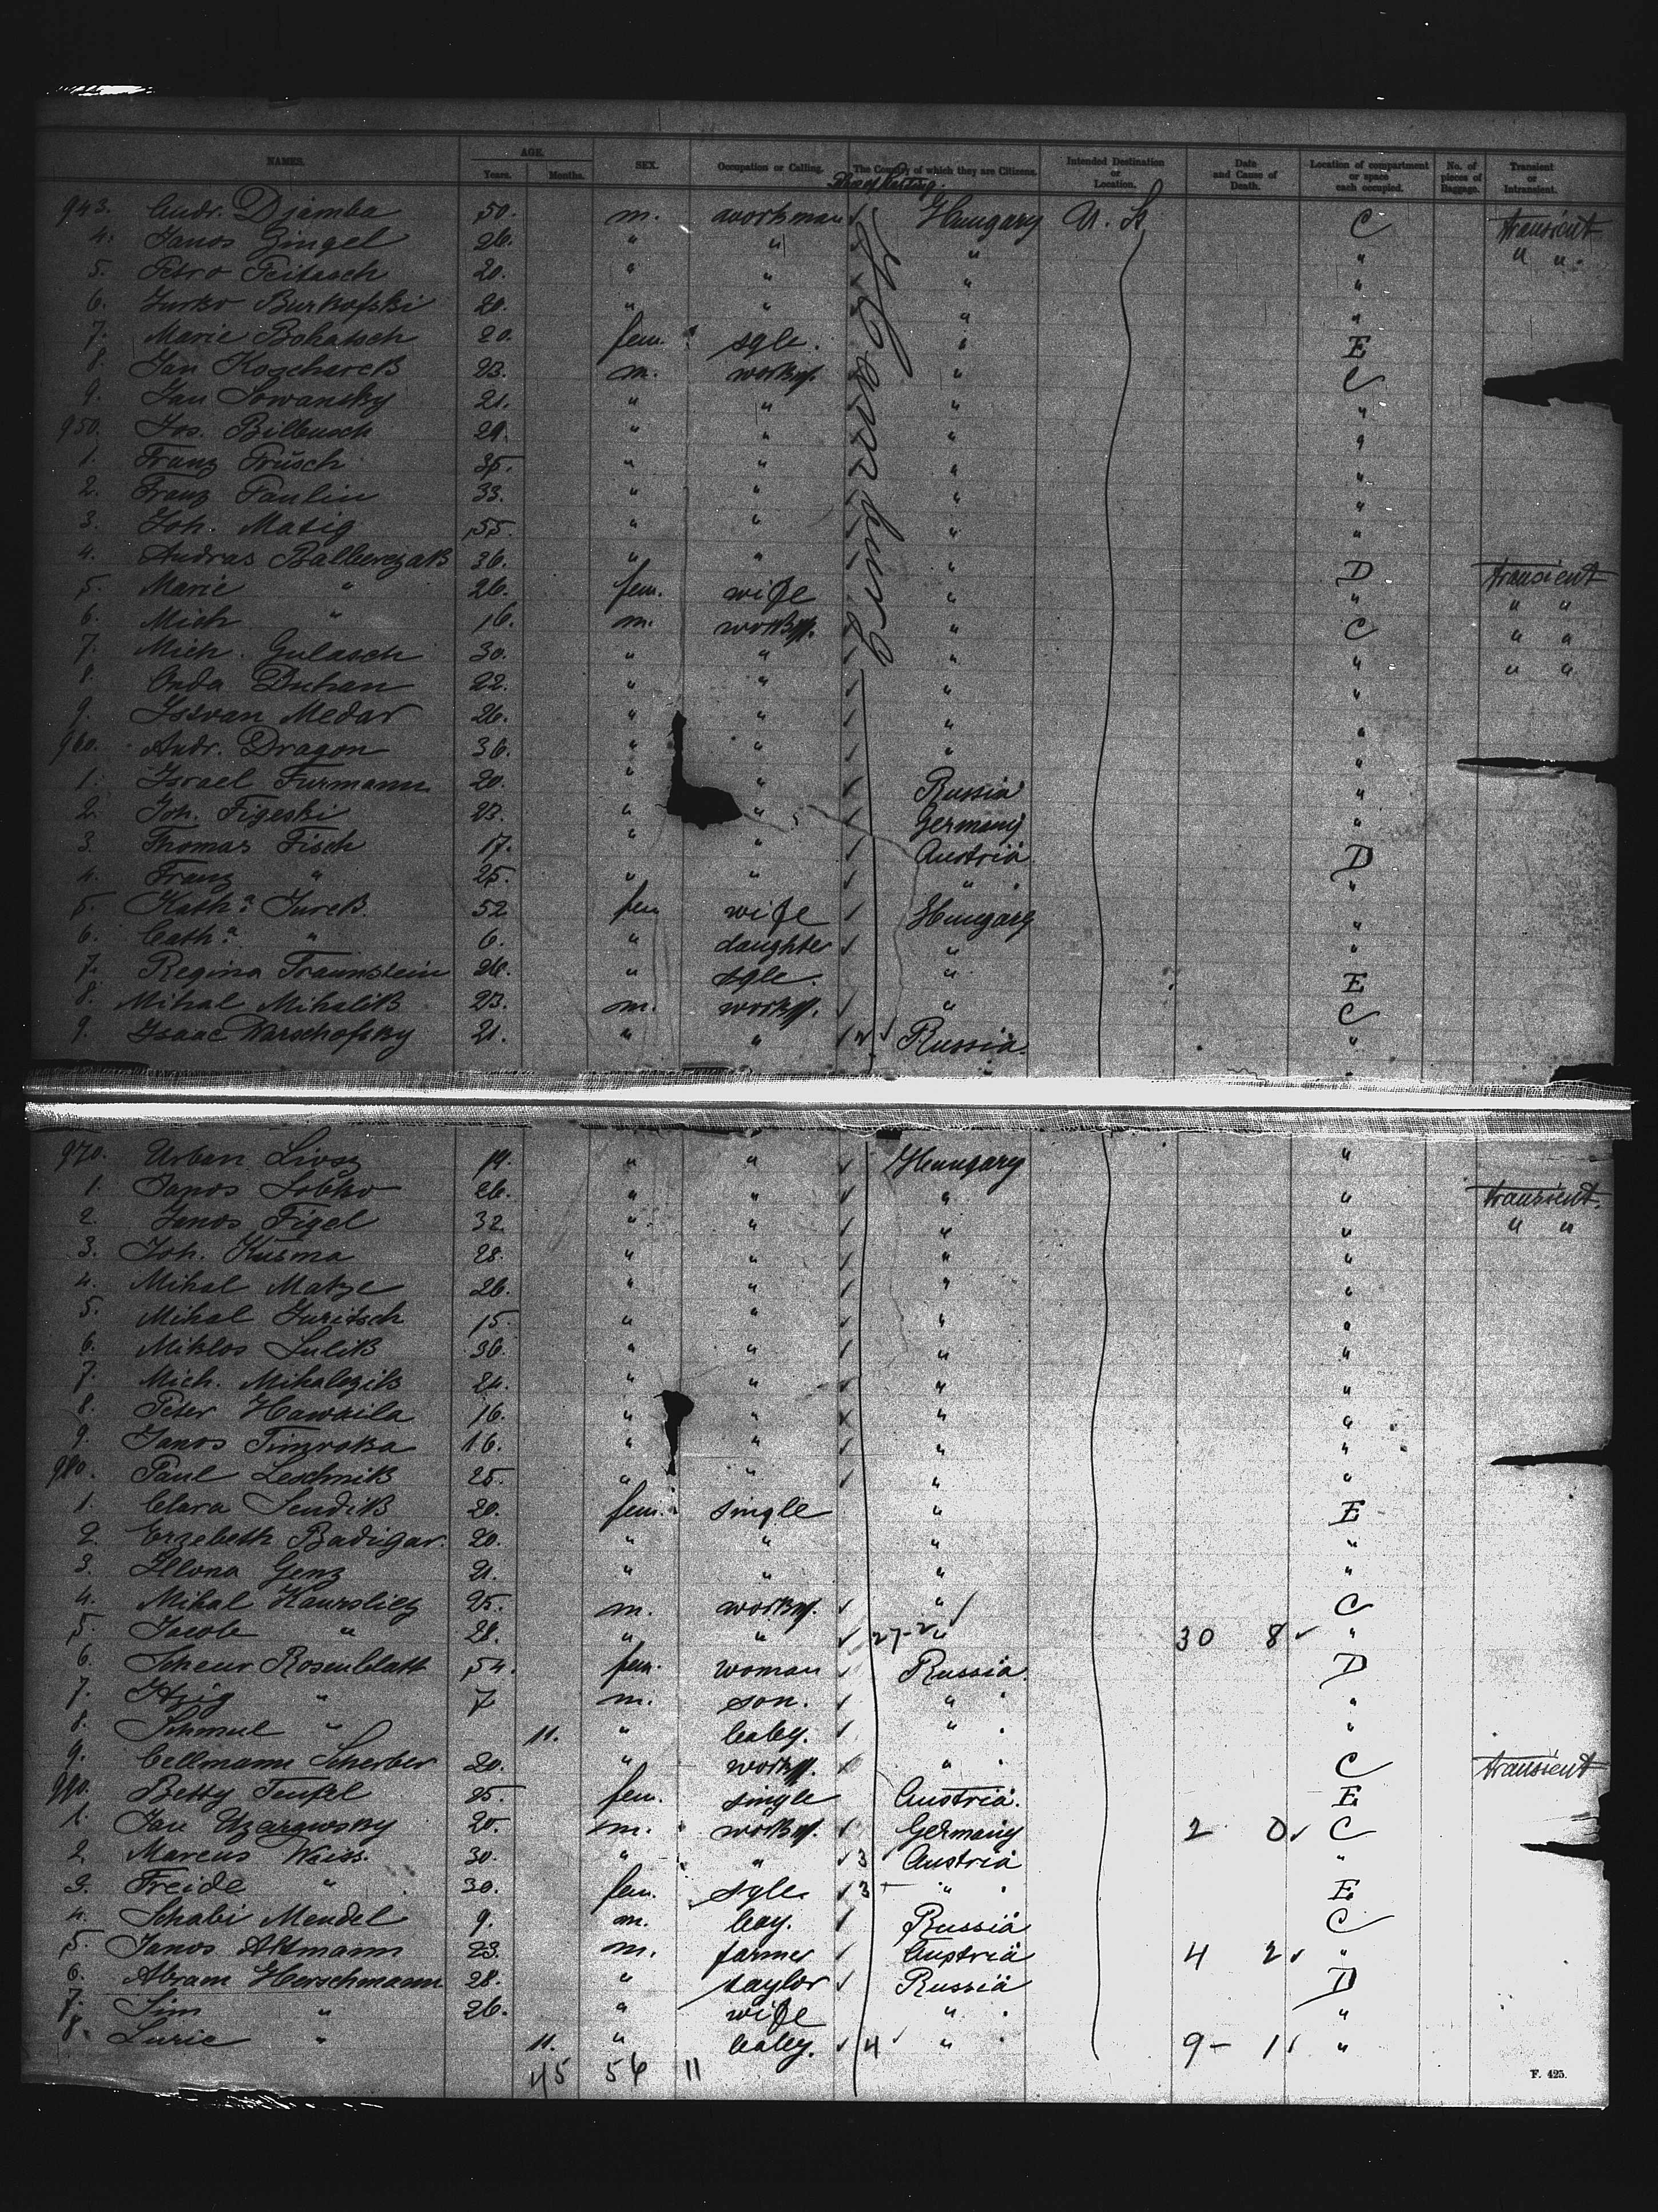 NAMES. AGE. Years. Months. SEX. Occupation or Calling. The Country of which they are Citizens. Intended Destination or Location. Date and Cause of Death. Location of compartment or space each occupied. No. of pieces of Baggage. Transient or Intransient.
943. Andr. Djamba 50. m. workman Hungary U. St C transient
4. Janos Zingel 26. " " " " " "
5. Petro Feitasch 20. " " " "
6. Jurko Burkofski 20. " " " "
7. Marie Bohatsch 20. fem. sgle. " E
8. Jan Koscharek 23. m. workm. " C
9. Jan Sowansky 21. " " " "
950. Jos. Bilbusch 29. " " " "
1. Franz Frusch 35. " " " "
2. Franz Paulin 33. " " " "
3. Joh. Matig 55. " " " "
4. Andras Balberezak 36. " " " D transient
5. Marie " 26. fem. wife " " " "
6. Mich " 16. m. workm. " C " "
7. Mich. Gulasch 30. " " " " " "
8. Anda Duhan 22. " " " "
9. Istvan Medar 26. " " " "
960. Andr. Dragon 36. " " " "
1. Israel Furmann 20. " " Russia "
2. Joh. Figeski 23. " " Germany "
3. Thomas Fisch 17. " " Austria D
4. Franz " 25. " " " "
5. Kath. Jurek 52 fem wife Hungary "
6. Cath. " 6. " daughter " "
7. Regina Traunstein 26. " sgle. " E
8. Mihal Mihalik 23. m. workm. " C
9. Isaac Warschofsky 21. " " Russia "
970. Urban Livsz 19. " " Hungary "
1. Janos Lobko 26. " " " " transient
2. Janos Figel 32. " " " " " "
3. Joh. Kusma 28. " " " "
4. Mihal Matze 26. " " " "
5. Mihal Juritsch 15. " " " "
6. Miklos Sulik 36. " " " "
7. Mich. Mihalczik 24. " " " "
8. Peter Hawrila 16. " " " "
9. Janos Timroka 16. " " " "
980. Paul Leschnik 25. " " " "
1. Clara Sendik 20. fem. single " E
2. Erzebeth Badigar 20. " " " "
3. Illona Genz 21. " " " "
4. Mihal 25. m. workm. " C
5. Jacob " 28. " " 27-2 " 30 8 "
6. Rosenblatt 54. fem. woman Russia D
7. Itzig " 7. m. son. " "
8. Schmul " 11. " baby. " "
9. Cellmann Scherber 20. " workm. " C transient
990. Betty Teufel 25. fem. single Austria. E
1. Jan 20. m. workm. Germany 2 0 C
2. Marcus Weiss 30. " " 3 Austria "
3. Freide " 30. fem. sgle. 3 " E
4. Schabi Mendel 9. m. boy. Russia C
5. Janos Altmann 23. m. farmer Austria 4 2 "
6. Abram Herschmann 28. " taylor Russia D
7. Sim " 26. " wife " "
8. Lurie " 11. " baby. 4 " 9- 1 "
45 56 11
F. 425.